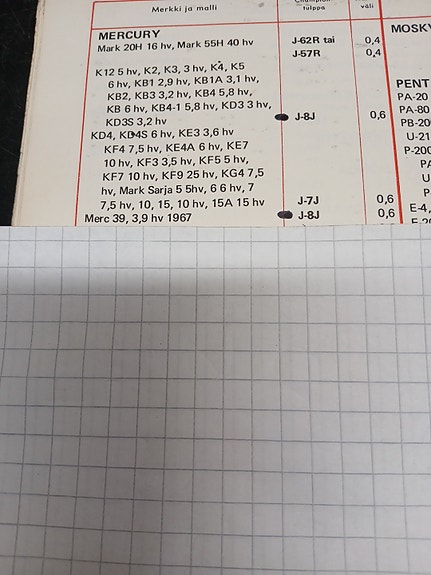 Merkki ja malli Champion- tulppa väli
MERCURY MOSKV
Mark 20H 16 hv, Mark 55H 40 hv J-62R tai 0,4
J-57R 0,4
K12 5 hv, K2, K3, 3 hv, K4, K5
6 hv, KB1 2,9 hv, KB1A 3,1 hv, PENT
KB2, BB3 3,2 hv, KB4 5,8 hv, PA-20
KB 6 hv, KB4-1 5,8 hv, KD3 3 hv, PA-80
KD3S 3,2 hv J-8J 0,6 PB-20
KD4, KD4S 6 hv, KE3 3,6 hv U-21
KF4 7,5 hv, KE4A 6 hv, KE7 P-200
10 hv, KF3 3,5 hv, KF5 5 hv, PA
KF7 10 hv, KF9 25 hv, KG4 7,5 U
hv, Mark Sarja 5 5hv, 6 6 hv, 7 P
7,5 hv, 10, 15, 10 hv, 15A 15 hv J-7J 0,6 E-4,
Merc 39, 3,9 hv 1967 J-8J 0,6